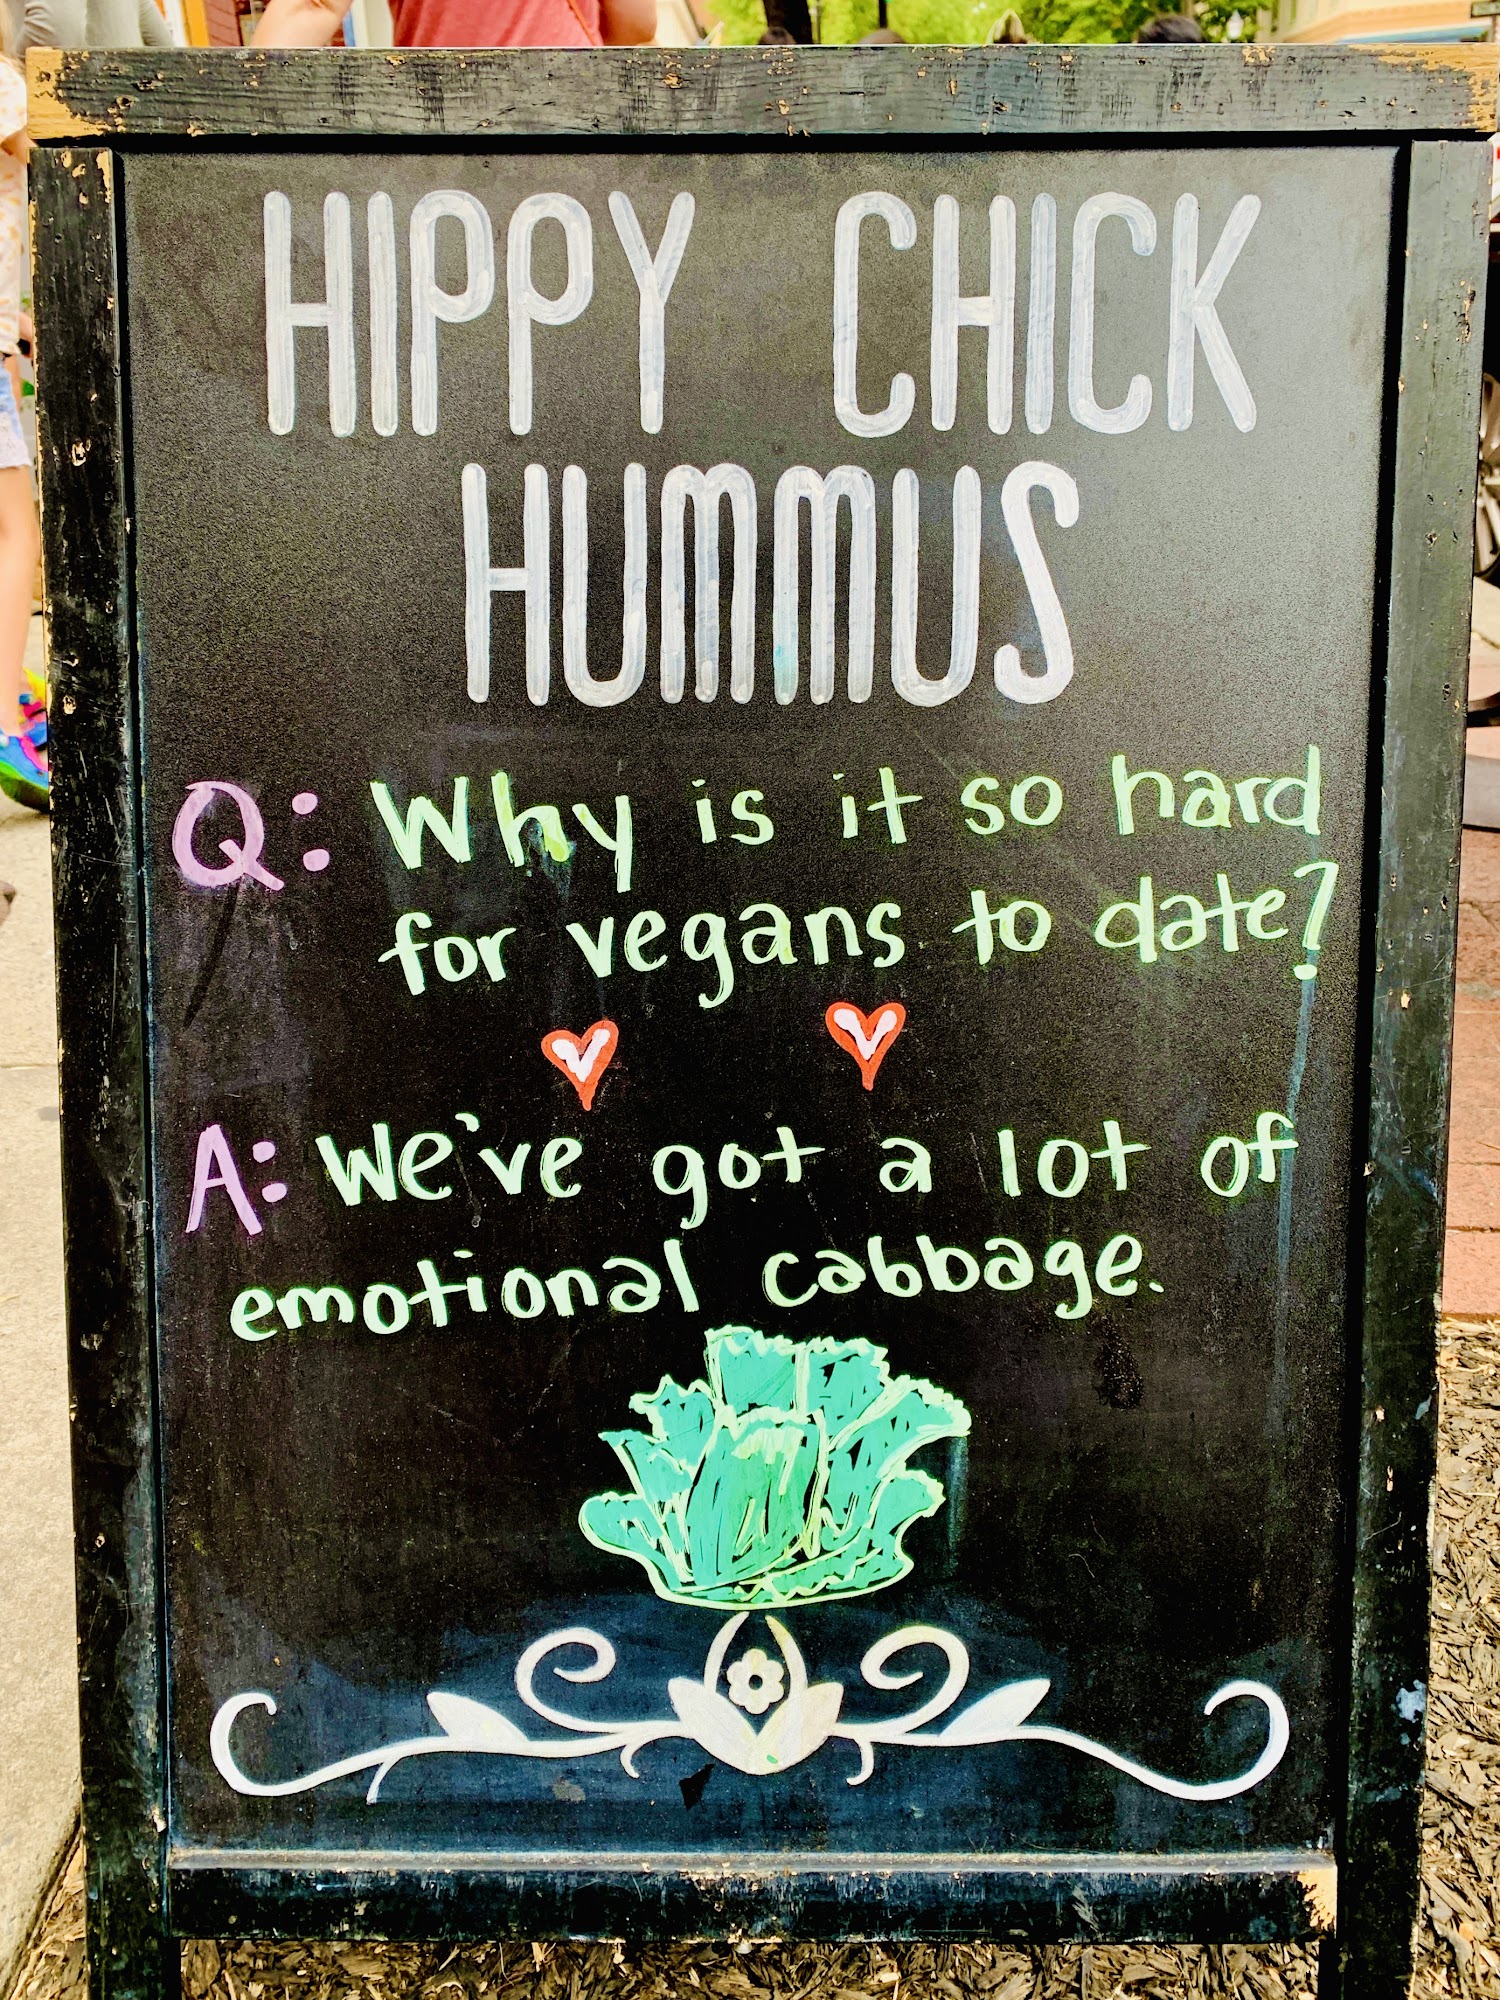 HIPPY CHICK
HUMMUS
Q: Why is it so hard
for vegans to date?
V V
A: We've got a lot of
emotional cabbage.